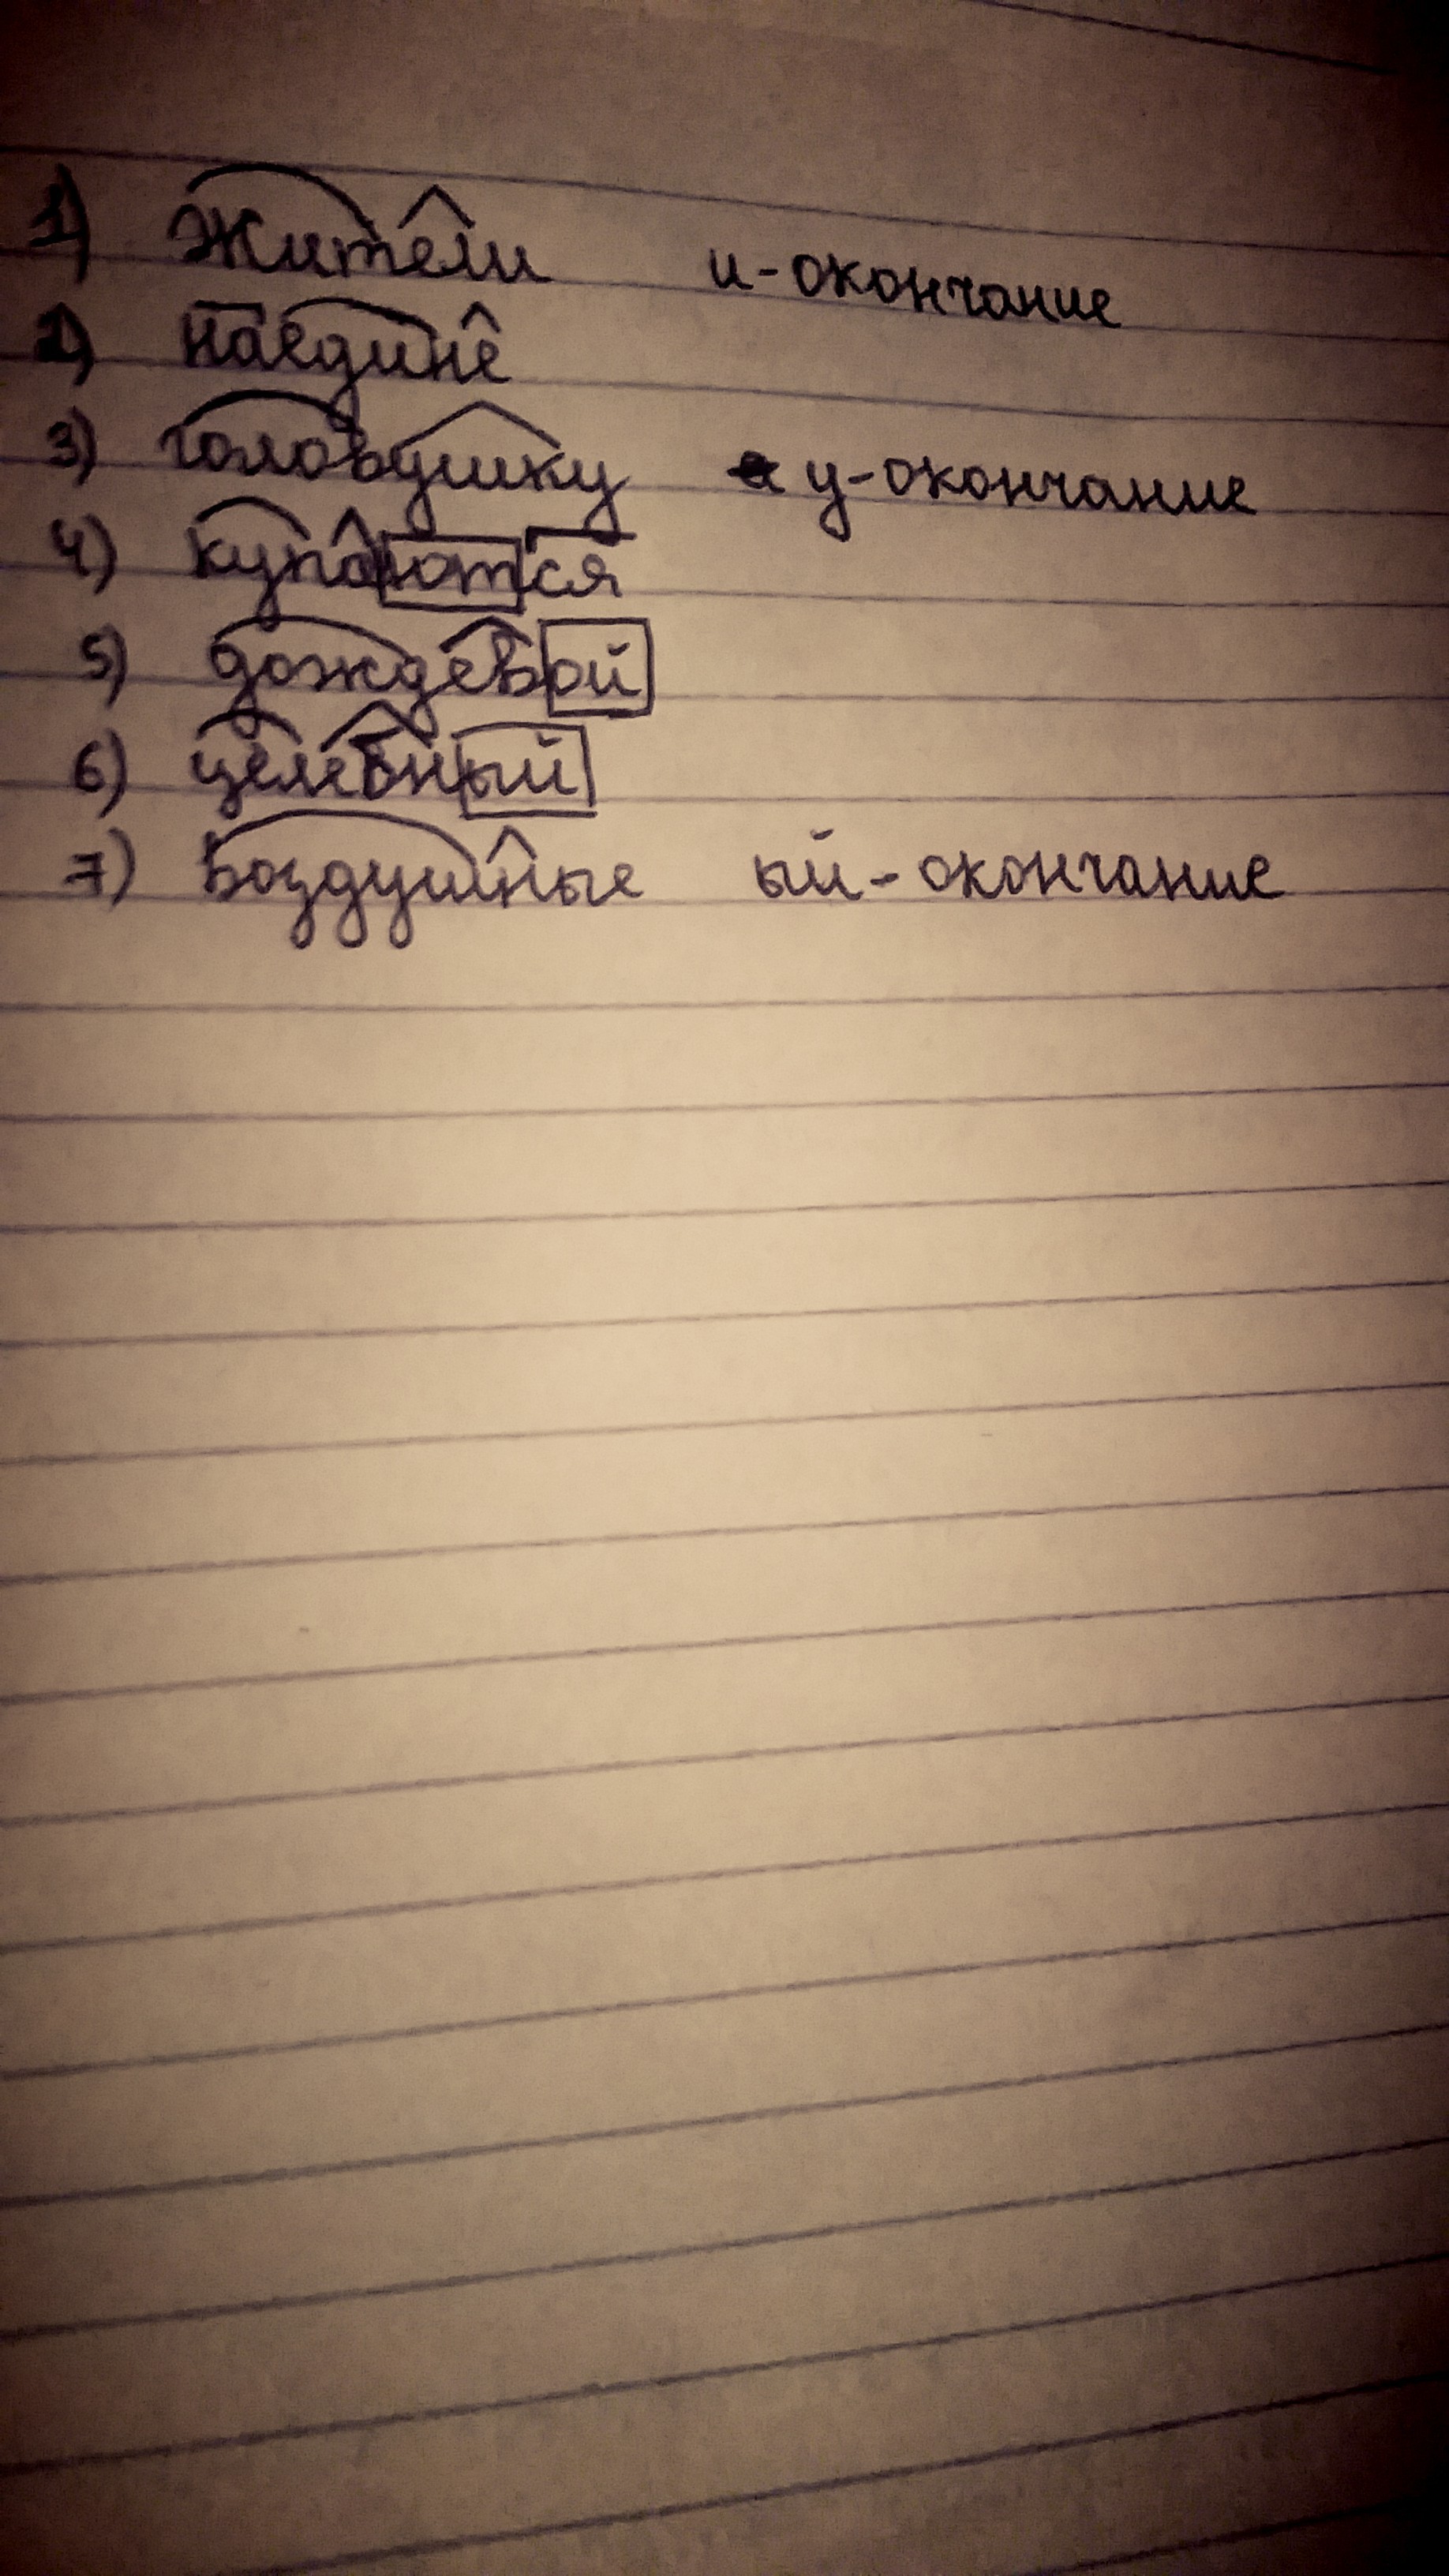 1) Жители и-окончание
2) наедине
3) головушку у-окончание
4) купаются
5) дождевой
6) целебный
7) Воздушные ый-окончание